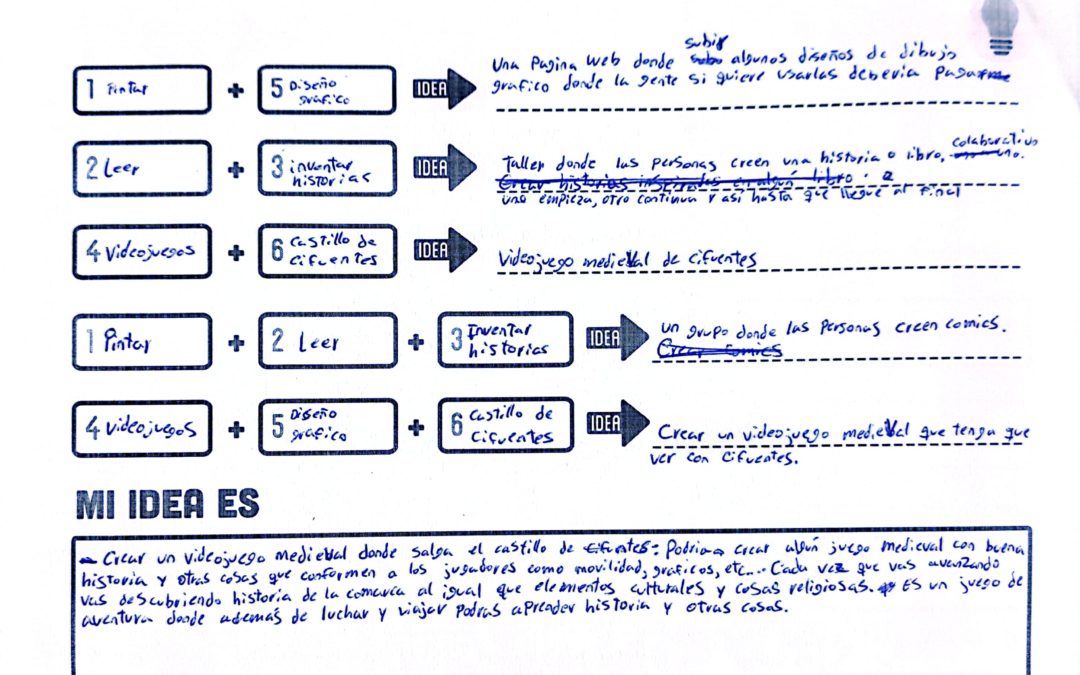 subir
Una Pagina web donde subo algunos diseños de dibujo
1 Pintar + 5 Diseño grafico IDEA grafico donde la gente si quiere usarlas deberia Pagarme
colaborativo
2 Leer + 3 inventar historias IDEA Taller donde las personas creen una historia o libro, uno.
Crear historias inspiradas en algún libro. a
uno empieza, otro continua y asi hasta que llegue al Final
4 Videojuegos + 6 Castillo de Cifuentes IDEA Videojuego medieval de cifuentes
1 Pintar + 2 Leer + 3 Inventar historias IDEA un grupo donde las personas creen comics.
Crear comics
4 videojuegos + 5 Diseño grafico + 6 Castillo de Cifuentes IDEA Crear un videojuego medieval que tenga que
ver con Cifuentes.
MI IDEA ES
- Crear un videojuego medieval donde salga el castillo de Cifuentes: Podriamos crear algún juego medieval con buena
historia y otras cosas que conformen a los jugadores como movilidad, graficos, etc... Cada vez que vas avanzando
vas descubriendo historia de la comarca al igual que elementos culturales y cosas religiosas. ES un juego de
aventura donde además de luchar y viajar podras aprender historia y otras cosas.